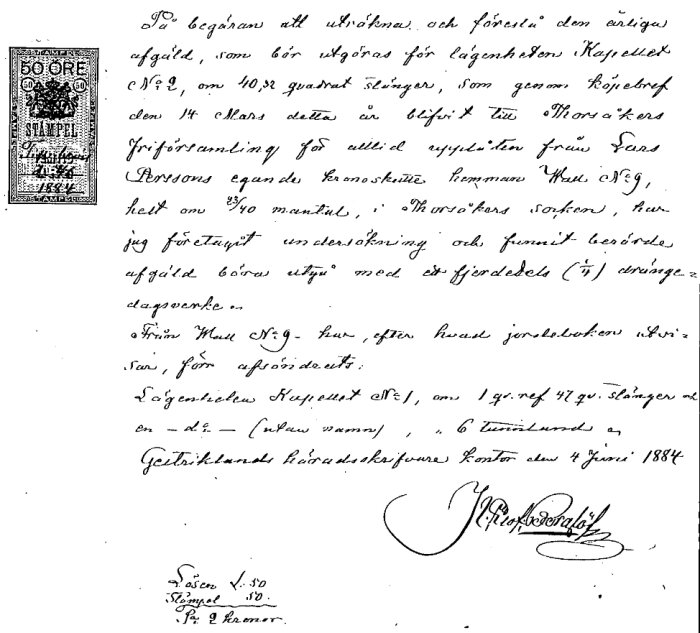 På begäran att uträkna och föreslå den årliga
afgäld, som bör utgöras för lägenheten Kapellet
No 2, om 40,32 quadrat stänger, som genom köpebref
den 14 Mars detta år blifvit till Thorsåkers
Friförsamling för alltid upplåten från Lars
Perssons egande kronoskatte hemman Wall No 9,
helt om 23/40 mantal, i Thorsåkers socken, har
jag företagit undersökning och funnit berörde
afgäld böra utgå med ett fjerdedels (1/4) dränge-
dagsverke.
Från Wall No 9 har, efter hvad jordeboken utvi-
sar, förr afsöndrats:
Lägenheten Kapellet No 1, om 1 qv. ref 47 qv. stänger och
en - do - (utan namn), " 6 tunnland
Gestriklands häradsskrifvare kontor den 4 Juni 1884
STÄMPEL
50 ÖRE
50 50
STÄMPEL
1884
STÄMPEL
Lösen 1.50
Stämpel 50.
Sa 2 kronor.